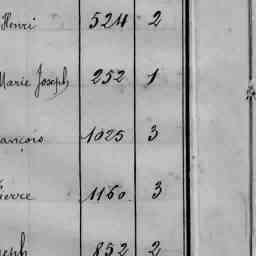 Henri 524 2
Marie Joseph 252 1
ançois 1025 3
ierre 1160 3
seph 852 2